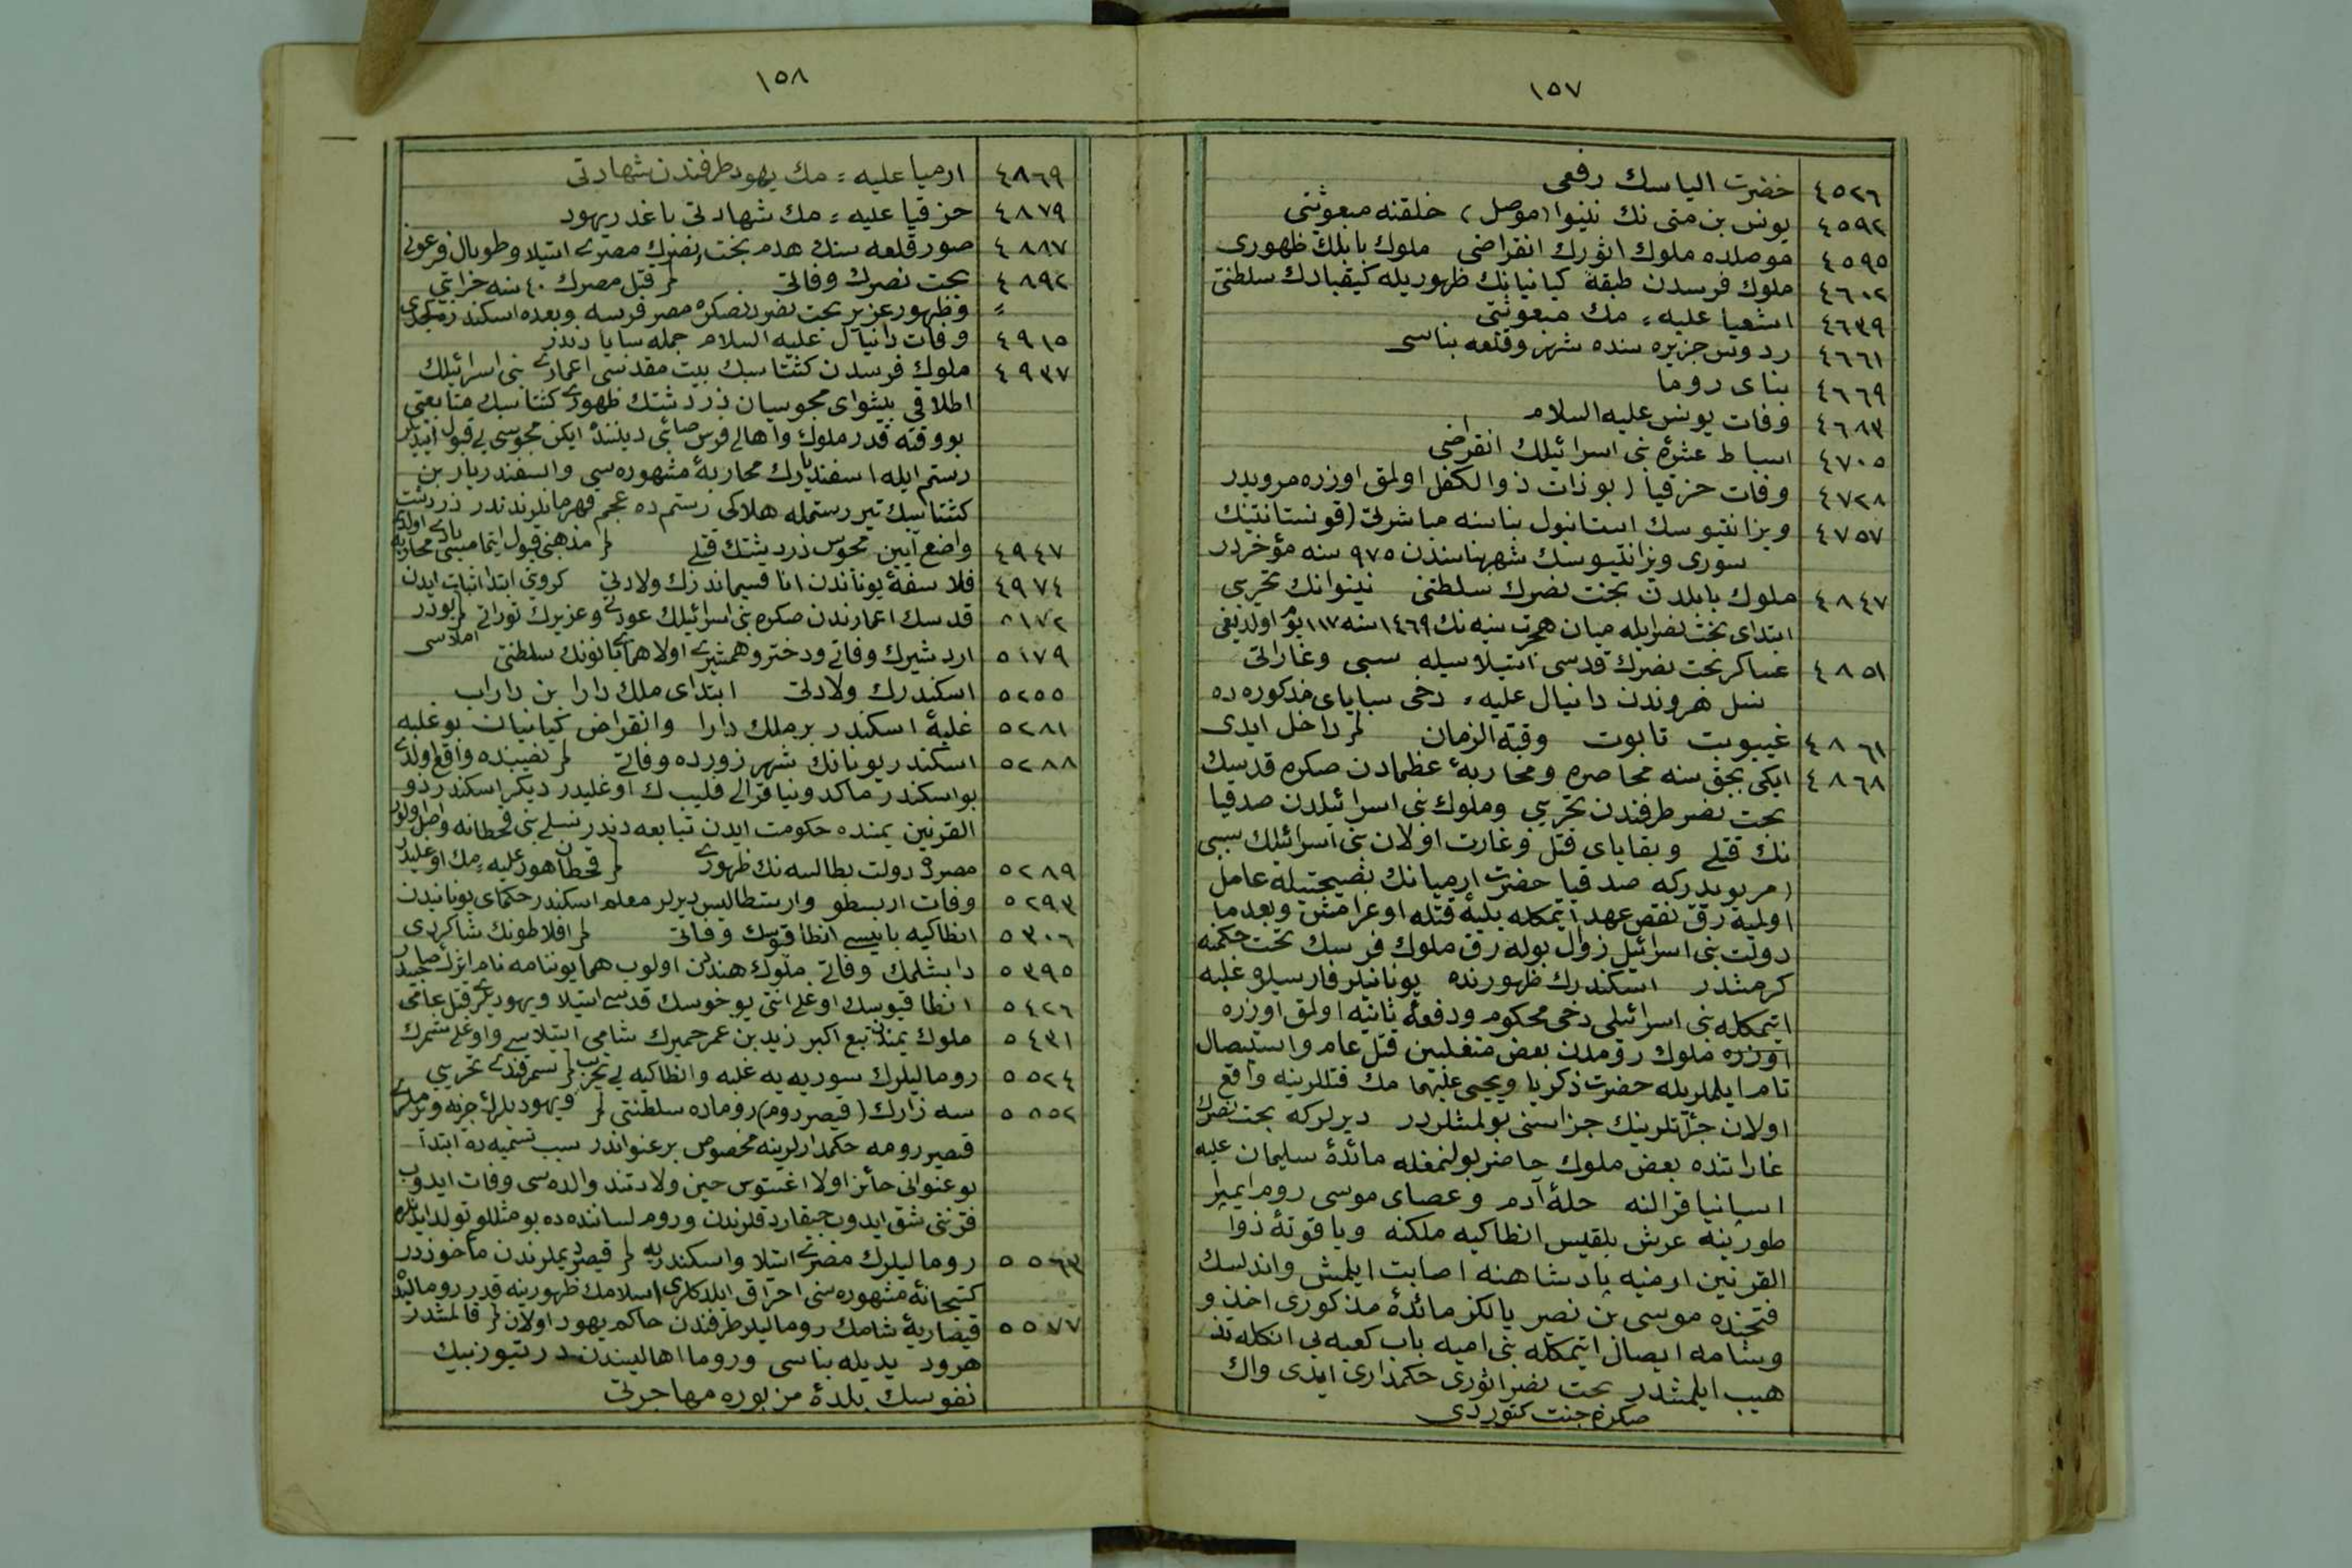 ١٥٧
٤٥٢٦ حضرت الياسك رفعى
٤٥٩٢ يونس بن متى نك نينوا (موصل) خلقنه مبعوثتى
٤٥٩٥ موصلده ملوك اثورك انقراضى ملوك بابلك ظهورى
٤٦٠٢ ملوك فرسدن طبقهٔ كيانيانك ظهوريله كيقبادك سلطنتى
٤٦٣٩ اشعيا عليه مك مبعوثتى
٤٦٦١ ردوس جزيره سنده شهر وقلعه بناسى
٤٦٦٩ بناى روما
٤٦٨٣ وفات يونس عليه السلام
٤٧٠٥ اسباط عشرهٔ بنى اسرائيلك انقراضى
٤٧٢٨ وفات حزقيا (بو ذات ذوالكفل اولمق اوزره مرويدر
٤٧٥٧ ويزانتيوسك استانبول بناسنه مباشرتى (قونستانتينك
سورى ويزانتيوسك شهر بناسندن ٩٧٥ سنه مؤخردر
٤٨٤٧ ملوك بابلدن بخت نصرك سلطنتى نينوانك تخريبى
ابتداى بخت نصرايله ميان هجرت نبيه نك ١٤٦٩ سنه ١١٧ يوم اولديغى
٤٨٥١ عساكر بخت نصرك قدسى استيلاسيله سبى وغاراتى
نسل هروندن دانيال عليه دخى سباياى مذكوره ده
٤٨٦١ غيبوبت تابوت وقبة الزمان داخل ايدى
٤٨٦٨ ايكى بچق سنه محاصره ومحاربهٔ عظمادن صكره قدسك
بخت نصر طرفندن تخريبى وملوك بنى اسرائيلدن صدقيا
نك قتلى وبقاياى قتل وغارت اولان بنى اسرائيلك سبى
(مرويدركه صدقيا حضرت ارميانك نصيحتيله عامل
اولميه رق نقض عهد ايتمكله بليهٔ قتله اوغرامش وبعدما
دولت بنى اسرائيل زوال بوله رق ملوك فرسك تحت حكمنه
كرمشدر اسكندرك ظهورنده يونانيلر فارسيلره غلبه
ايتمكله بنى اسرائيلى دخى محكوم ودفعهٔ ثانيه اولمق اوزره
اوزره ملوك رومدن بعض متغلبين قتل عام واستيصال
تام ايلملريله حضرت ذكريا ويحيى عليهما مك قتللرينه واقع
اولان جرأتلرينك جزاسنى بولمشلردر ديرلركه بخت نصرك
غاراتنده بعض ملوك حاضر بولنمغله مائدهٔ سليمان عليه
اسپانيا قرالنه حلهٔ آدم وعصاى موسى روم ايمپرا
طورينه عرش بلقيس انطاكيه ملكنه وياقوتهٔ ذوا
القرنين ارمنيه پادشاهنه اصابت ايلمش واندلسك
فتحنده موسى بن نصر يالكز مائدهٔ مذكورى اخذ و
وشامه ايصال ايتمكله بنى اميه باب كعبه يى انكله تذ
هيب ايلمشدر بخت نصر اثورى حكمدارى ايدى واك
صكره جنت كتوردى
١٥٨
٤٨٦٩ ارميا عليه مك يهود طرفندن شهادتى
٤٨٧٩ حزقيا عليه مك شهادتى باغدر يهود
٤٨٨٧ صور قلعه سنك هدم بخت نصرك مصرى استيلا وطوبال فرعونى
٤٨٩٢ بخت نصرك وفاتى قتل مصرك ٤٠ سنه خرابتى
وظهور عزير بخت نصردنصكره مصر فرسه وبعده اسكندره
٤٩١٥ وفات دانيال عليه السلام جمله سبايا دندر
٤٩٣٧ ملوك فرسدن كشتاسبك بيت مقدسى اعمارى بنى اسرائيلك
اطلاقى پيشواى مجوسيان زردشتك ظهورى كشتاسبك متابعتى
بو وقته قدر ملوك واهالى فرس صائبى ديننده ايكن مجوسى يى قبول ايتديلر
رستم ايله اسفنديارك محاربهٔ مشهوره سى واسفنديار بن
كشتاسبك تير رستمله هلاكى رستم ده عجم قهرمانلرندندر زردشت
٤٩٤٧ واضع آيين مجوس زردشتك قتلى مذهبنى قبول ايتمامسى
٤٩٧٤ فلاسفهٔ يوناندن اناقسيماندرك ولادتى كرويتى ابتدا اثبات ايدن
٥١٧٢ قدسك اعمارندن صكره بنى اسرائيلك عودتى وعزيرك توراتى بودر
٥١٧٩ اردشيرك وفاتى ودختر وهمشيرى اولا هماى خاتونك سلطنتى املاسى
٥٢٥٥ اسكندرك ولادتى ابتداى ملك دارا بن داراب
٥٢٨١ غلبهٔ اسكندر بر ملك دارا وانقراض كيانيان بو غلبه
٥٢٨٨ اسكندر يونانك شهر زورده وفاتى نصيبنده واقع اولدى
بو اسكندر ماكدونيا قرالى فليب ك اوغليدر ديكر اسكندر ذو
القرنين يمنده حكومت ايدن تبابعه دندر نسلى بنى قحطانه واصل اولور
٥٢٨٩ مصرده دولت بطالسه نك ظهورى قحطان هود عليه مك اوغليدر
٥٢٩٣ وفات ارسطو وارسطاليس ديرلر معلم اسكندر حكماى يوناندن
٥٣٠٦ انطاكيه بانيسى انطاقيوسك وفاتى افلاطونك شاكردى
٥٣٩٥ دابشلمك وفاتى ملوك هنددن اولوب همايوننامه نام اثرك صاحبيدر
٥٤٢٦ انطاقيوسك اوغلى انتى يوخوسك قدسى استيلا ويهوديلرى قتل عامى
٥٤٣١ ملوك يمندن تبع اكبر زيد بن عمر حميرك شامى استيلاسى واوغلى شمرك
٥٥٢٤ روماليلرك سوريه يه غلبه وانطاكيه يى تخريب سمرقندى تخريبى
٥٨٥٢ سه زارك (قيصر روم) روماده سلطنتى ويهوديلرك جزيه ويرملرى
قيصر رومه حكمدارلرينه مخصوص بر عنواندر سبب تسميه ده ابتدا
بو عنوانى حائز اولا اغستوس حين ولادتنده والده سى وفات ايدوب
قرننى شق ايدوب چيقاردقلرندن وروم لساننده ده بو مثللو تولد ايدنلره
٥٥٦٣ روماليلرك مصرى استيلا واسكندريه قيصر ديملرندن مأخوذدر
كتبخانهٔ مشهوره سنى احراق ايلدكلرى اسلامك ظهورينه قدر روماليلرده
٥٥٧٧ قيصاريهٔ شامك روماليلر طرفندن حاكم يهود اولان قالمشدر
هرود يديله بناسى وروما اهاليسندن در تيوزبيك
نفوسك بلدهٔ مزبوره مهاجرتى